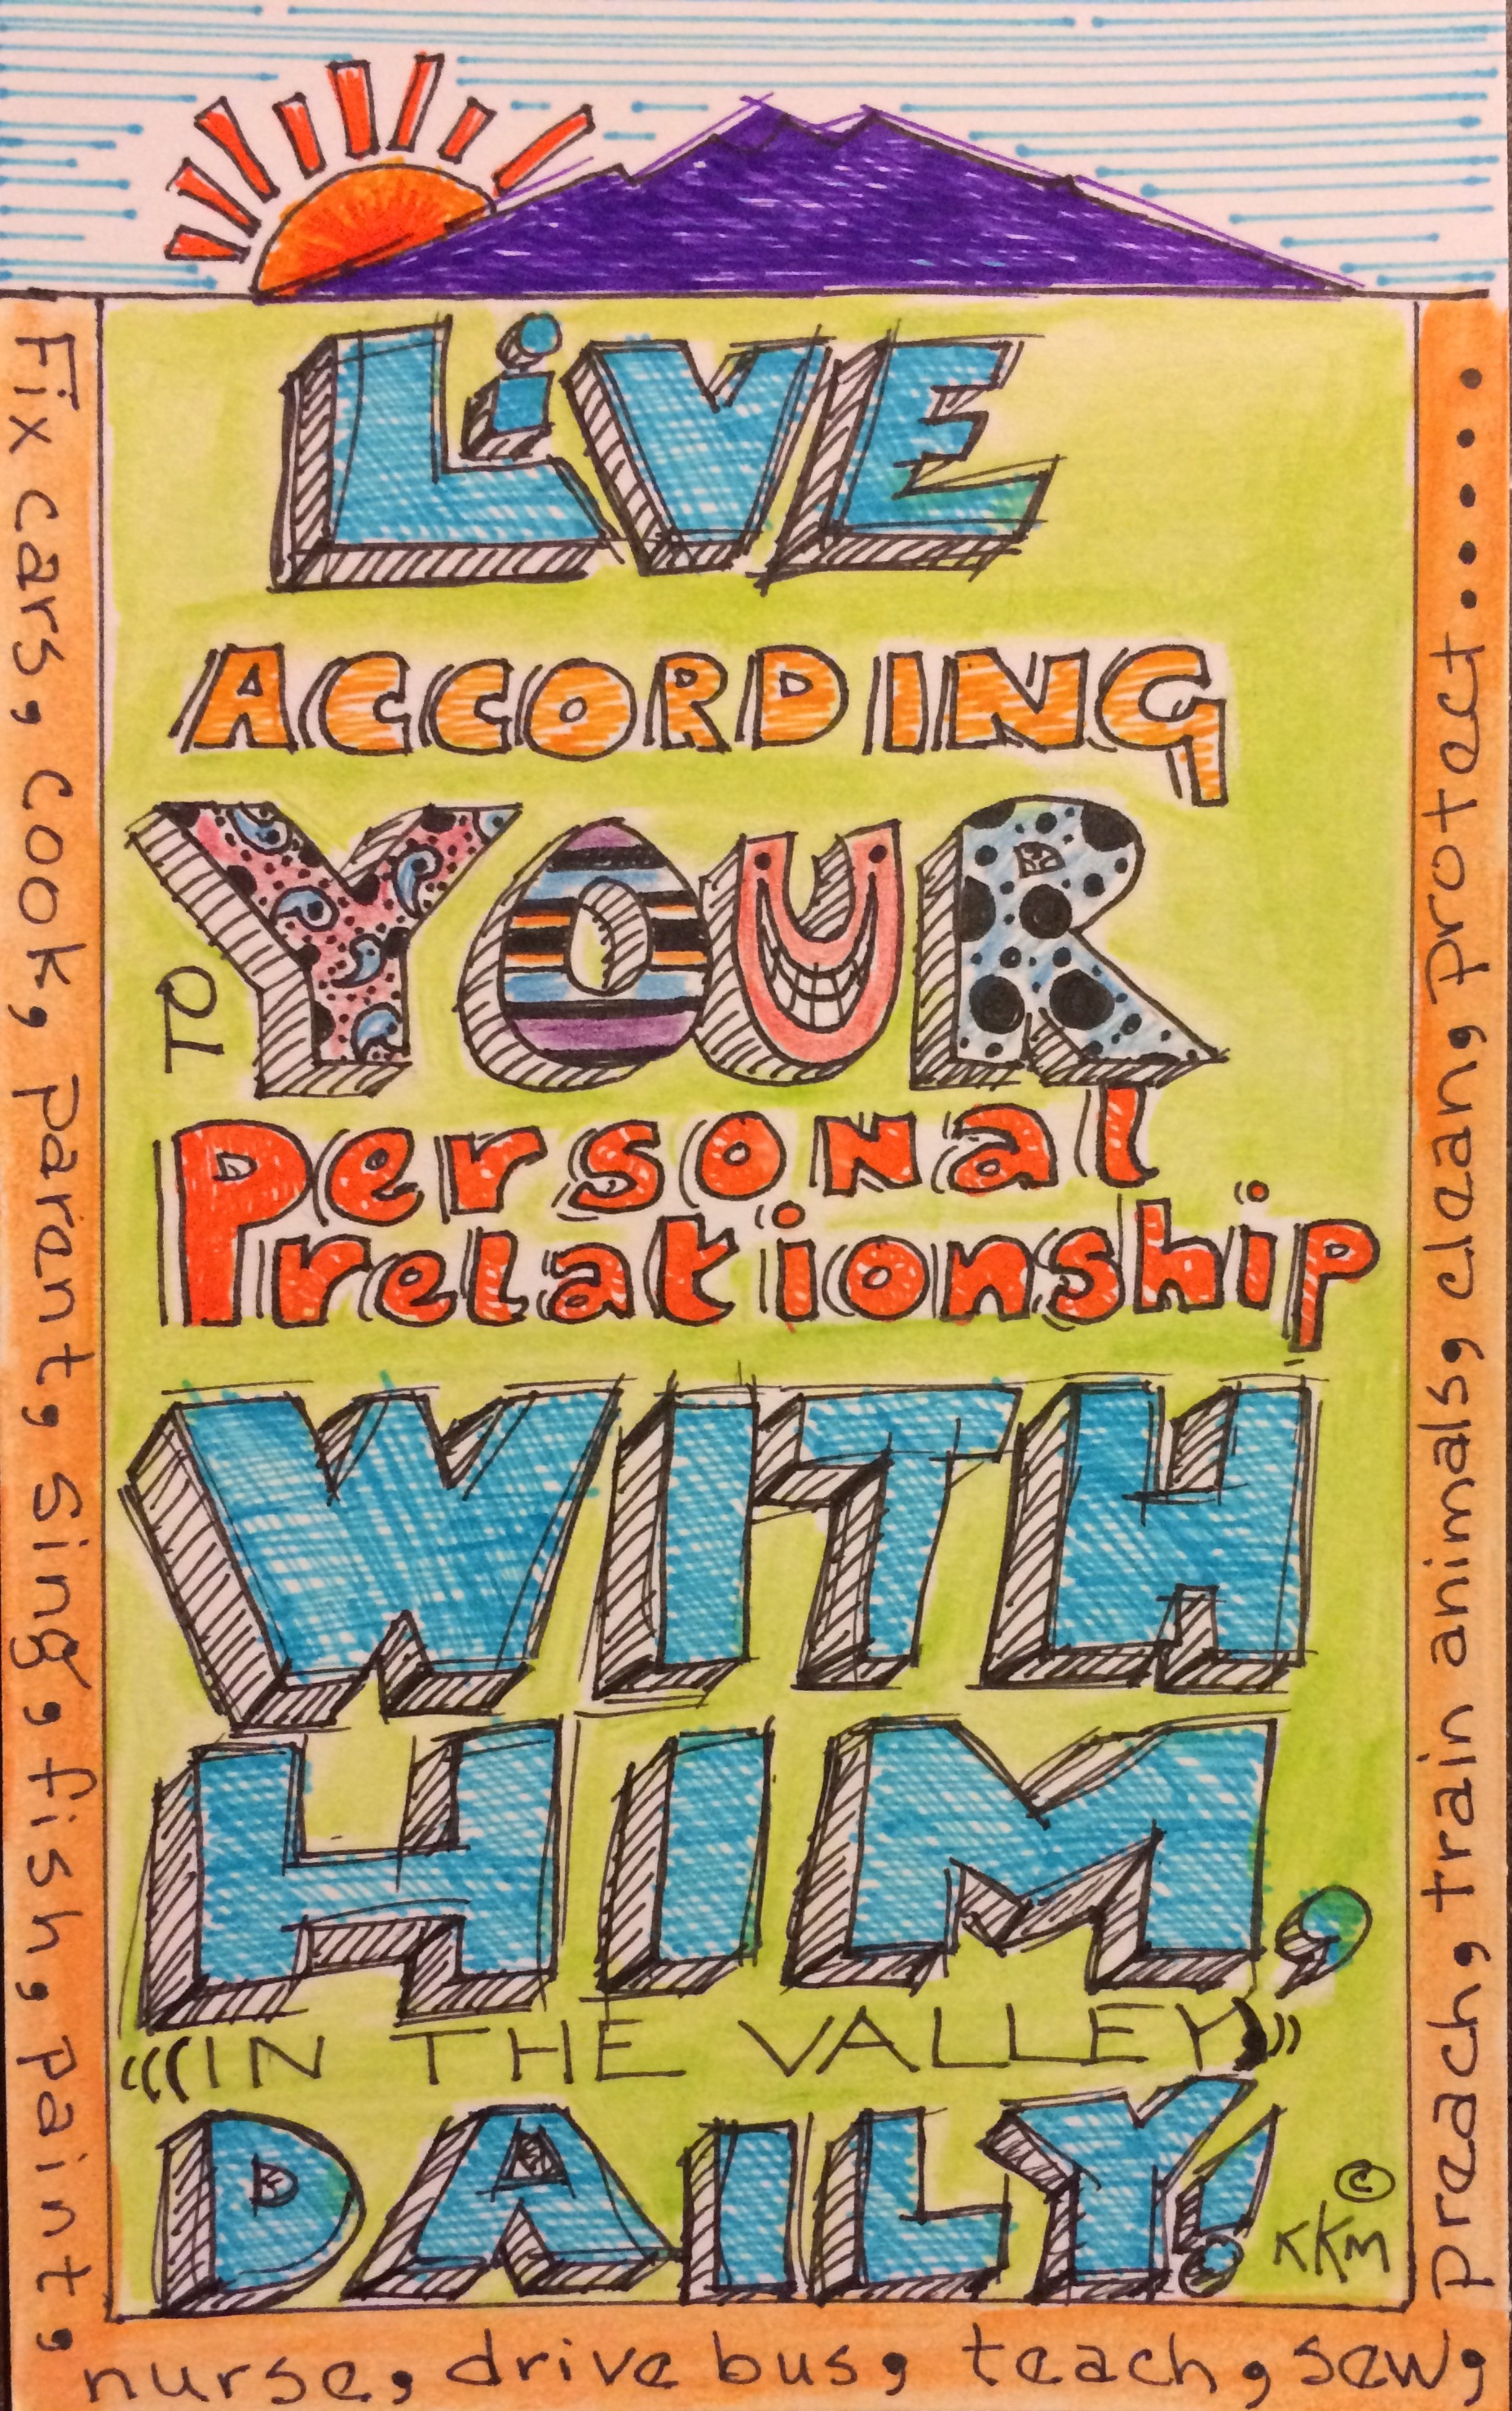 LiVE
ACCORDING
TO YOUR
Personal
relationship
WITH
HIM,
(((IN THE VALLEY)))
DAILY!
© KKM
Fix cars, cook, parent, sing, fish, paint,
nurse, drive bus, teach, sew,
preach, train animals, clean, protect.....